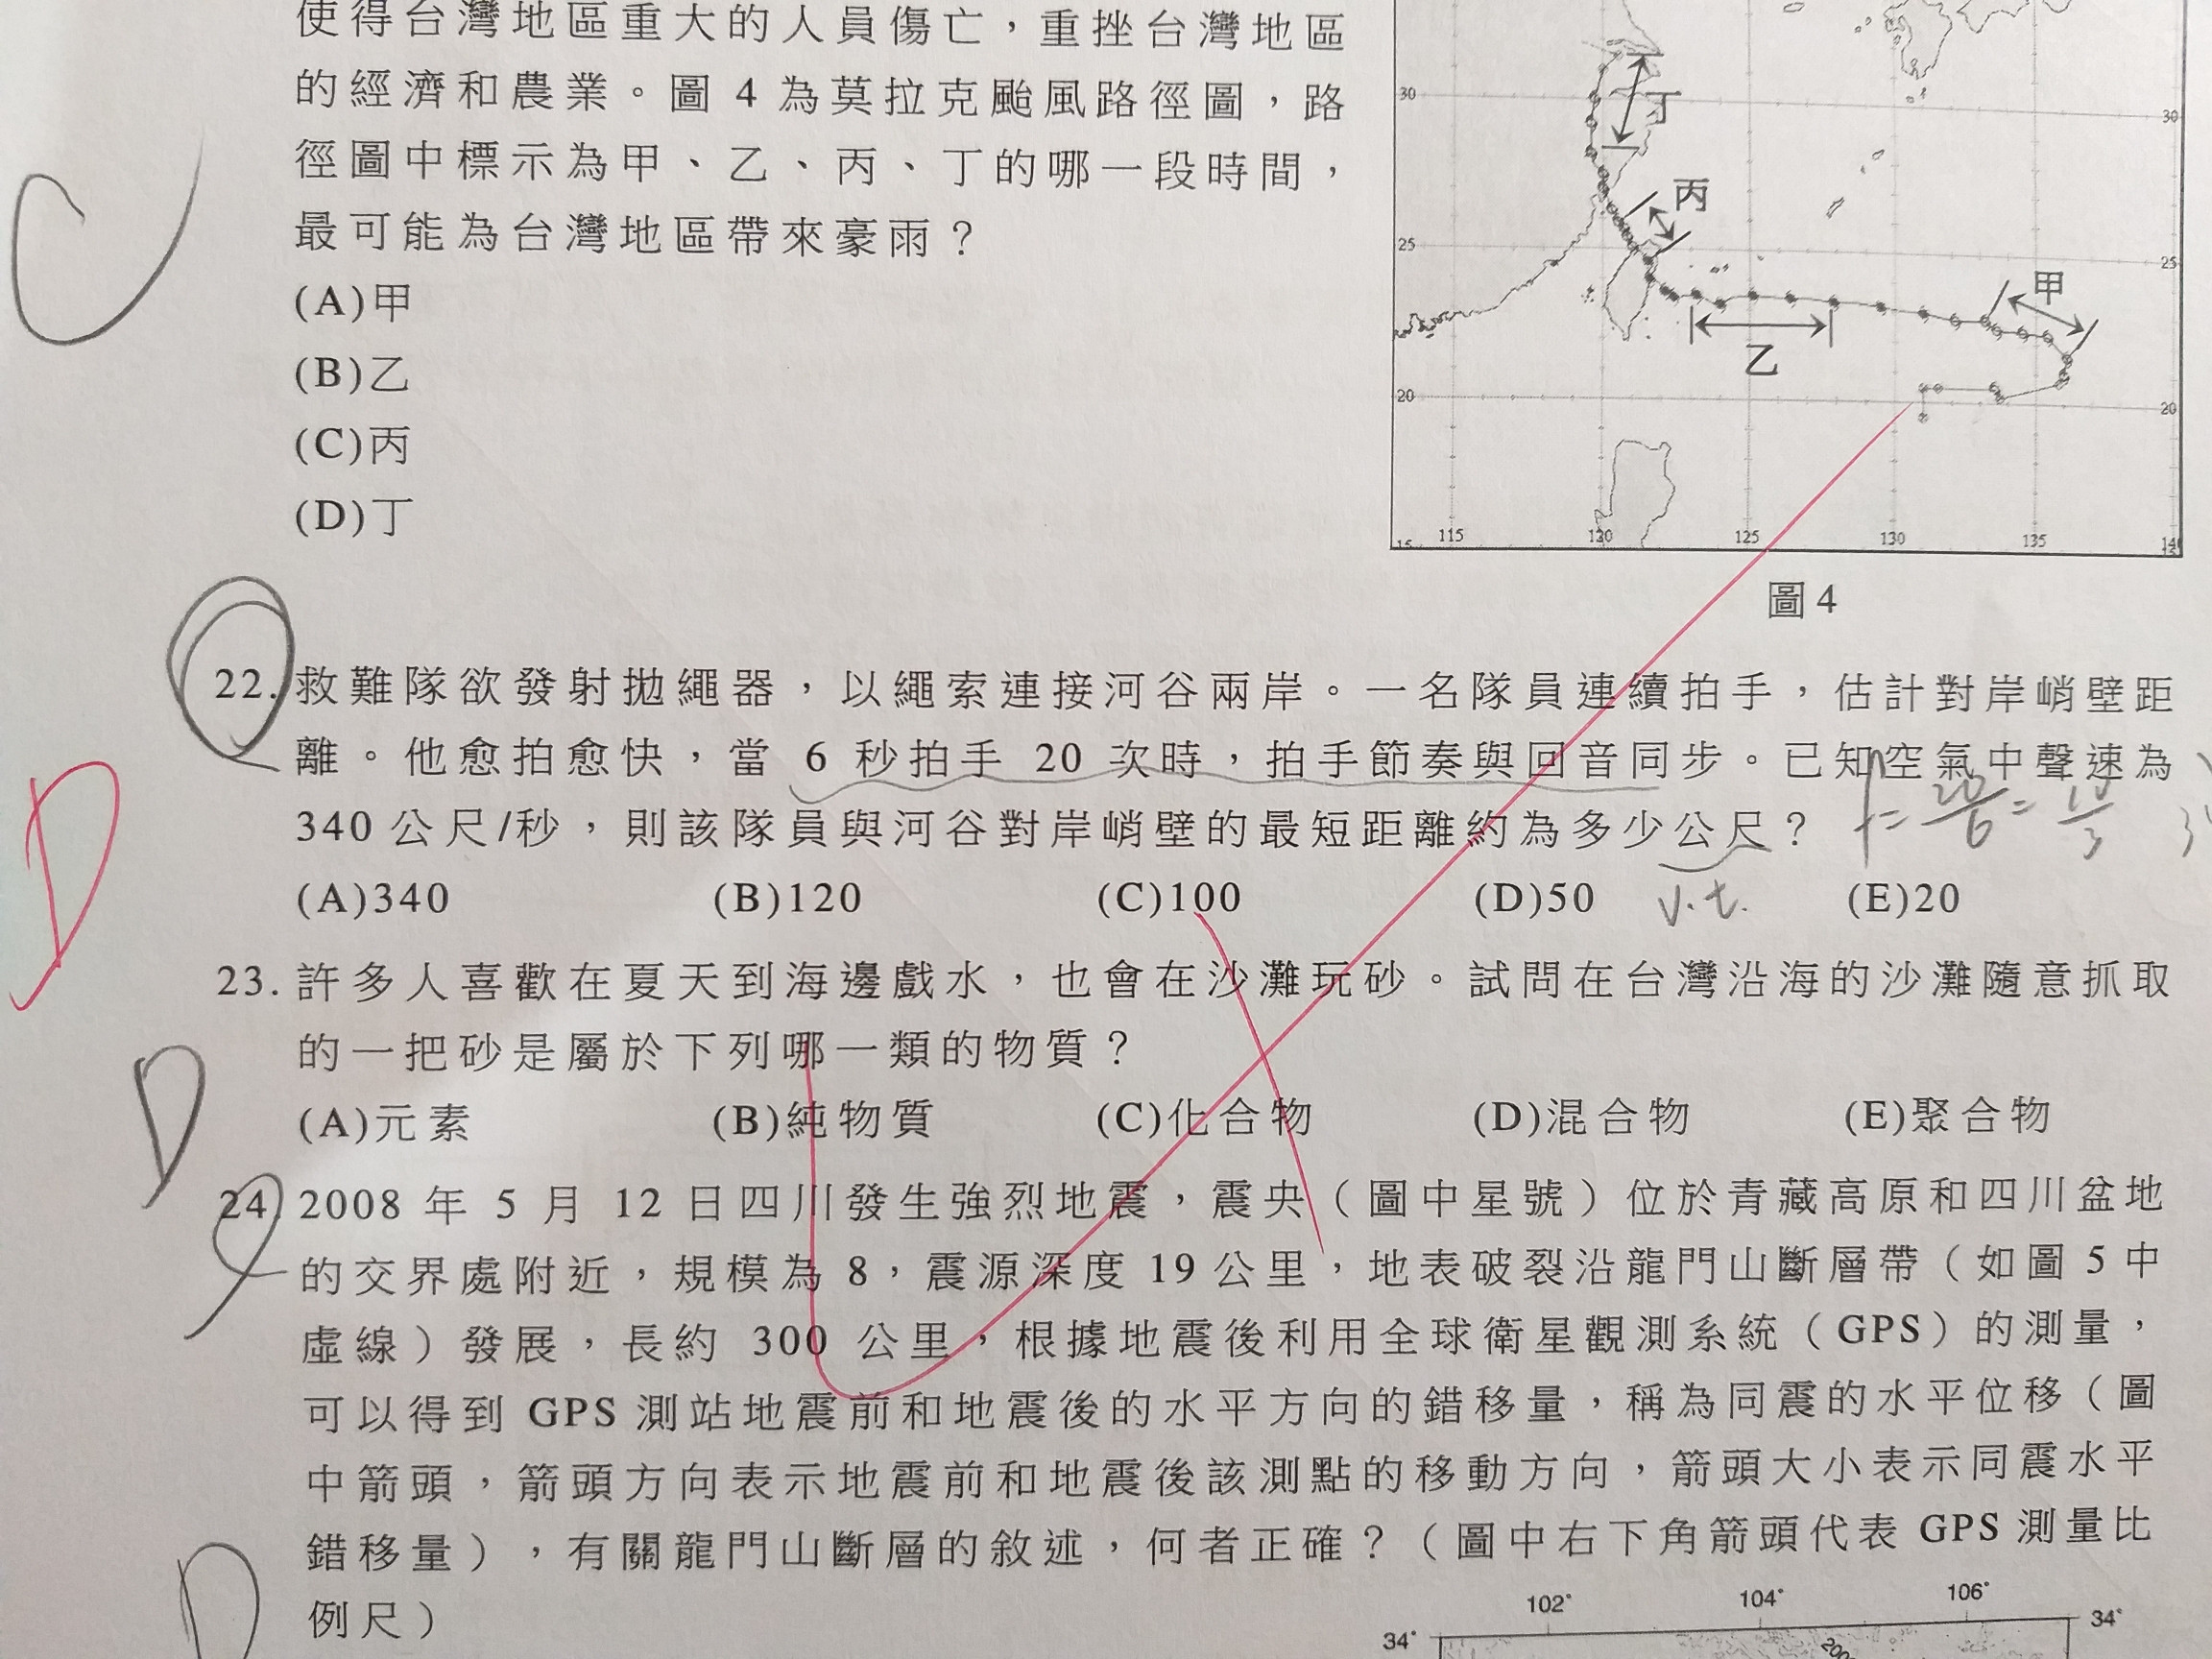 使得台灣地區重大的人員傷亡，重挫台灣地區
的經濟和農業。圖 4 為莫拉克颱風路徑圖，路
徑圖中標示為甲、乙、丙、丁的哪一段時間，
最可能為台灣地區帶來豪雨？
(A)甲
(B)乙
(C)丙
(D)丁
C
30 丁 30
丙
25 25
甲
乙
20 20
15 115 120 125 130 135
圖 4
22. 救難隊欲發射拋繩器，以繩索連接河谷兩岸。一名隊員連續拍手，估計對岸峭壁距
離。他愈拍愈快，當 6 秒拍手 20 次時，拍手節奏與回音同步。已知空氣中聲速為
340 公尺/秒，則該隊員與河谷對岸峭壁的最短距離約為多少公尺？
f = 20/6 = 10/3
(A)340 (B)120 (C)100 (D)50 v.t. (E)20
D
23. 許多人喜歡在夏天到海邊戲水，也會在沙灘玩砂。試問在台灣沿海的沙灘隨意抓取
的一把砂是屬於下列哪一類的物質？
(A)元素 (B)純物質 (C)化合物 (D)混合物 (E)聚合物
D
24. 2008 年 5 月 12 日四川發生強烈地震，震央（圖中星號）位於青藏高原和四川盆地
的交界處附近，規模為 8，震源深度 19 公里，地表破裂沿龍門山斷層帶（如圖 5 中
虛線）發展，長約 300 公里，根據地震後利用全球衛星觀測系統（GPS）的測量，
可以得到 GPS 測站地震前和地震後的水平方向的錯移量，稱為同震的水平位移（圖
中箭頭，箭頭方向表示地震前和地震後該測點的移動方向，箭頭大小表示同震水平
錯移量），有關龍門山斷層的敘述，何者正確？（圖中右下角箭頭代表 GPS 測量比
例尺）
D
102° 104° 106°
34° 34°